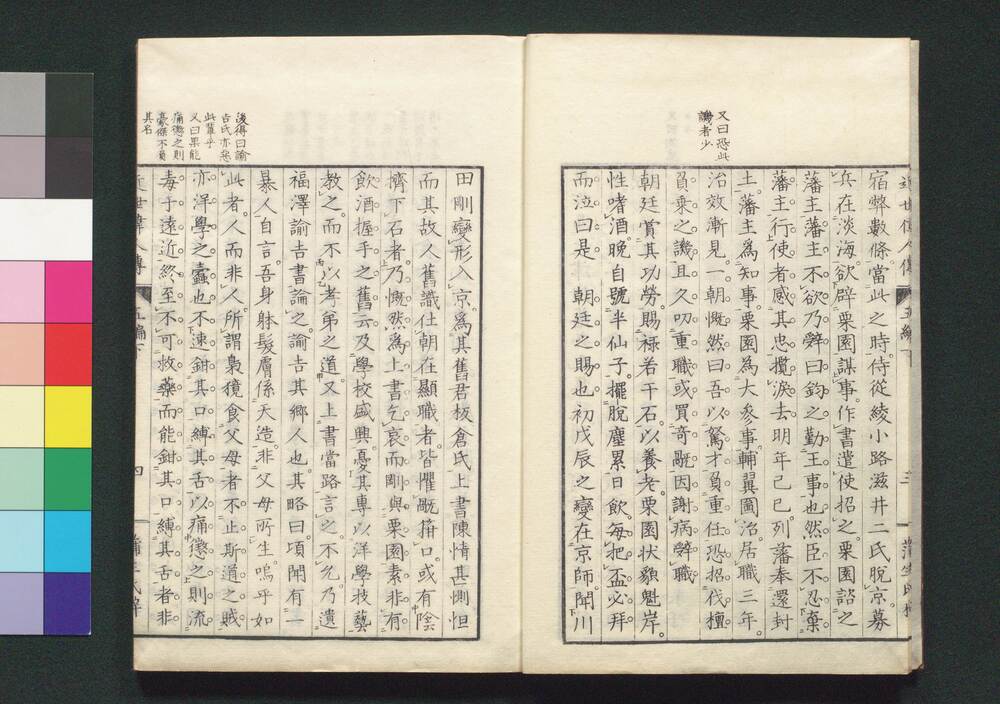 又曰恐此
議者少
宿弊數條當此之時侍從綾小路滋井二氏脫京募
兵在淡海欲辟栗園謀事作書遣使招之栗園諮之
藩主藩主不欲乃辭曰鈞之勤王事也然臣不忍棄
藩主行使者感其忠攬淚去明年己巳列藩奉還封
土藩主為知事栗園為大參事輔翼圖治居職三年
治效漸見一朝慨然曰吾以駑才負重任恐招伐檀
負乘之譏且久叨重職或買奇敲因謝病辭職
朝廷賞其功勞賜祿若干石以養老栗園狀貌魁岸
性嗜酒晚自號半仙子擺脫塵累日飲每把盃必拜
而泣曰是 朝廷之賜也初戊辰之變在京師聞川
三
後得曰諭
吉氏亦惡
此輩乎
又曰果能
痛懲之則
豪傑不負
其名
田剛變形入京為其舊君板倉氏上書陳情甚惻怛
而其故人舊識仕朝在顯職者皆懼厩箝口或有陰
擠下石者乃慨然為上書乞哀而剛與栗園素非有
飲酒握手之舊云及學校盛興憂其專以洋學技藝
教之而不以孝弟之道又上書當路言之不允乃遺
福澤諭吉書論之諭吉其鄉人也其略曰頃聞有一
暴人自言吾身躰髮膚係天造非父母所生嗚乎如
此者人而非人所謂梟獍食父母者不止斯道之賊
亦洋學之蠹也不速鉗其口縛其舌以痛懲之則流
毒于遠近終至不可救藥而能鉗其口縛其舌者非
近世偉人傳
五編下
四
蒲生氏梓